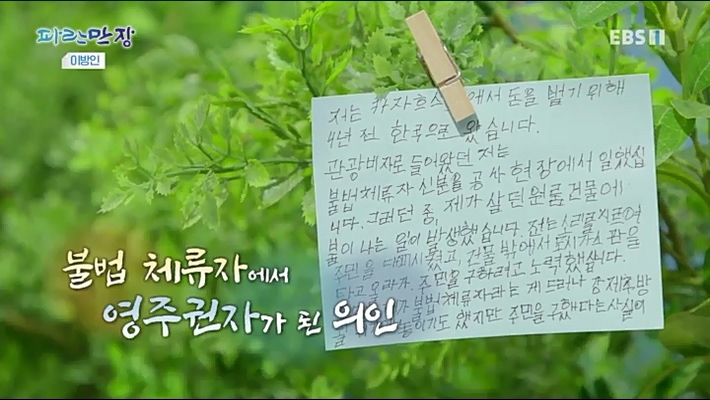 파란만장
이방인
EBS1
저는 카자흐스 에서 돈을 벌기 위해
4년 전 한국으로 왔습니다.
관광비자로 들어왔던 저는
불법체류자 신분을 공사 현장에서 일했십
니다. 그러던 중, 제가 살던 원룸건물에
불이 나는 일이 발생했습니다. 저는 소리를지르며
주민을 대피시켰고, 건물 밖에서 도시가스 관을
타고 올라가, 주민을구하려고 노력했습니다.
불법체류자라는 게 드러나 강제추방
되기도 했지만 주민을 구했다는사실이
불법 체류자에서
영주권자가 된 의인